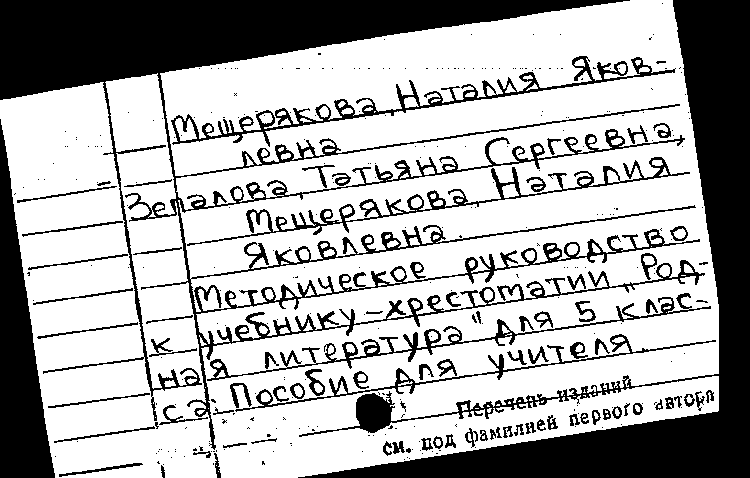 Мещерякова, Наталия Яков-
левна
Зепалова, Татьяна Сергеевна,
Мещерякова, Наталия
Яковлевна.
Методическое руководство
к учебнику-хрестоматии "Род-
ная литература" для 5 клас-
са: Пособие для учителя.
Перечень изданий
см. под фамилией первого автора